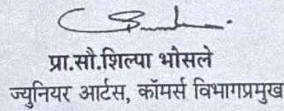 प्रा.सौ.शिल्पा भोसले
ज्युनियर आर्टस, कॉमर्स विभागप्रमुख